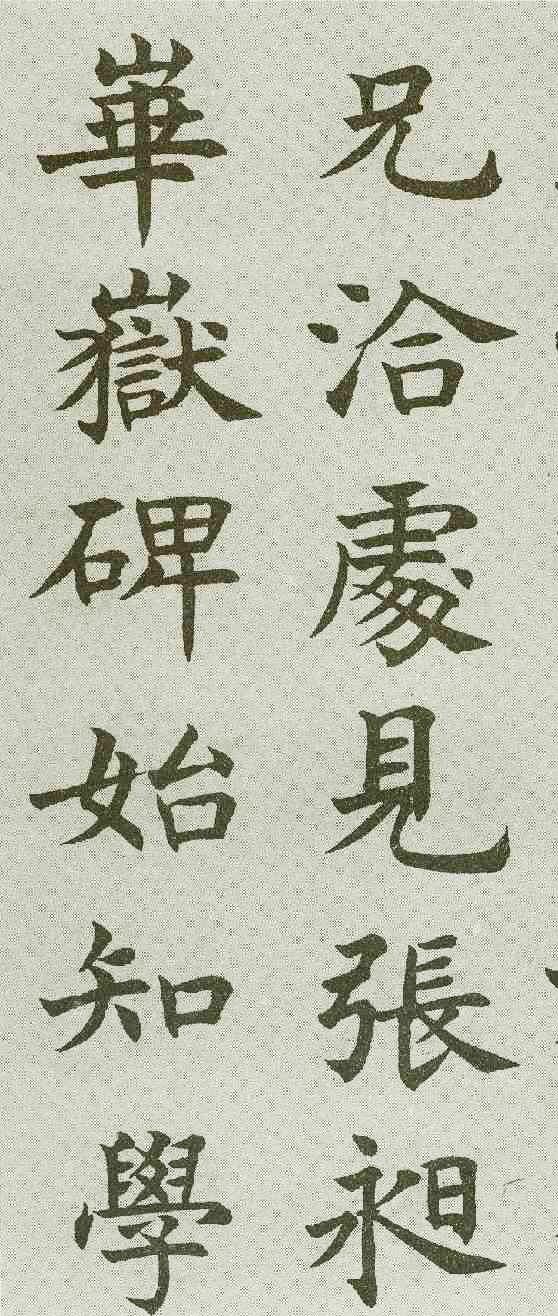 兄洽處見張昶
華嶽碑始知學